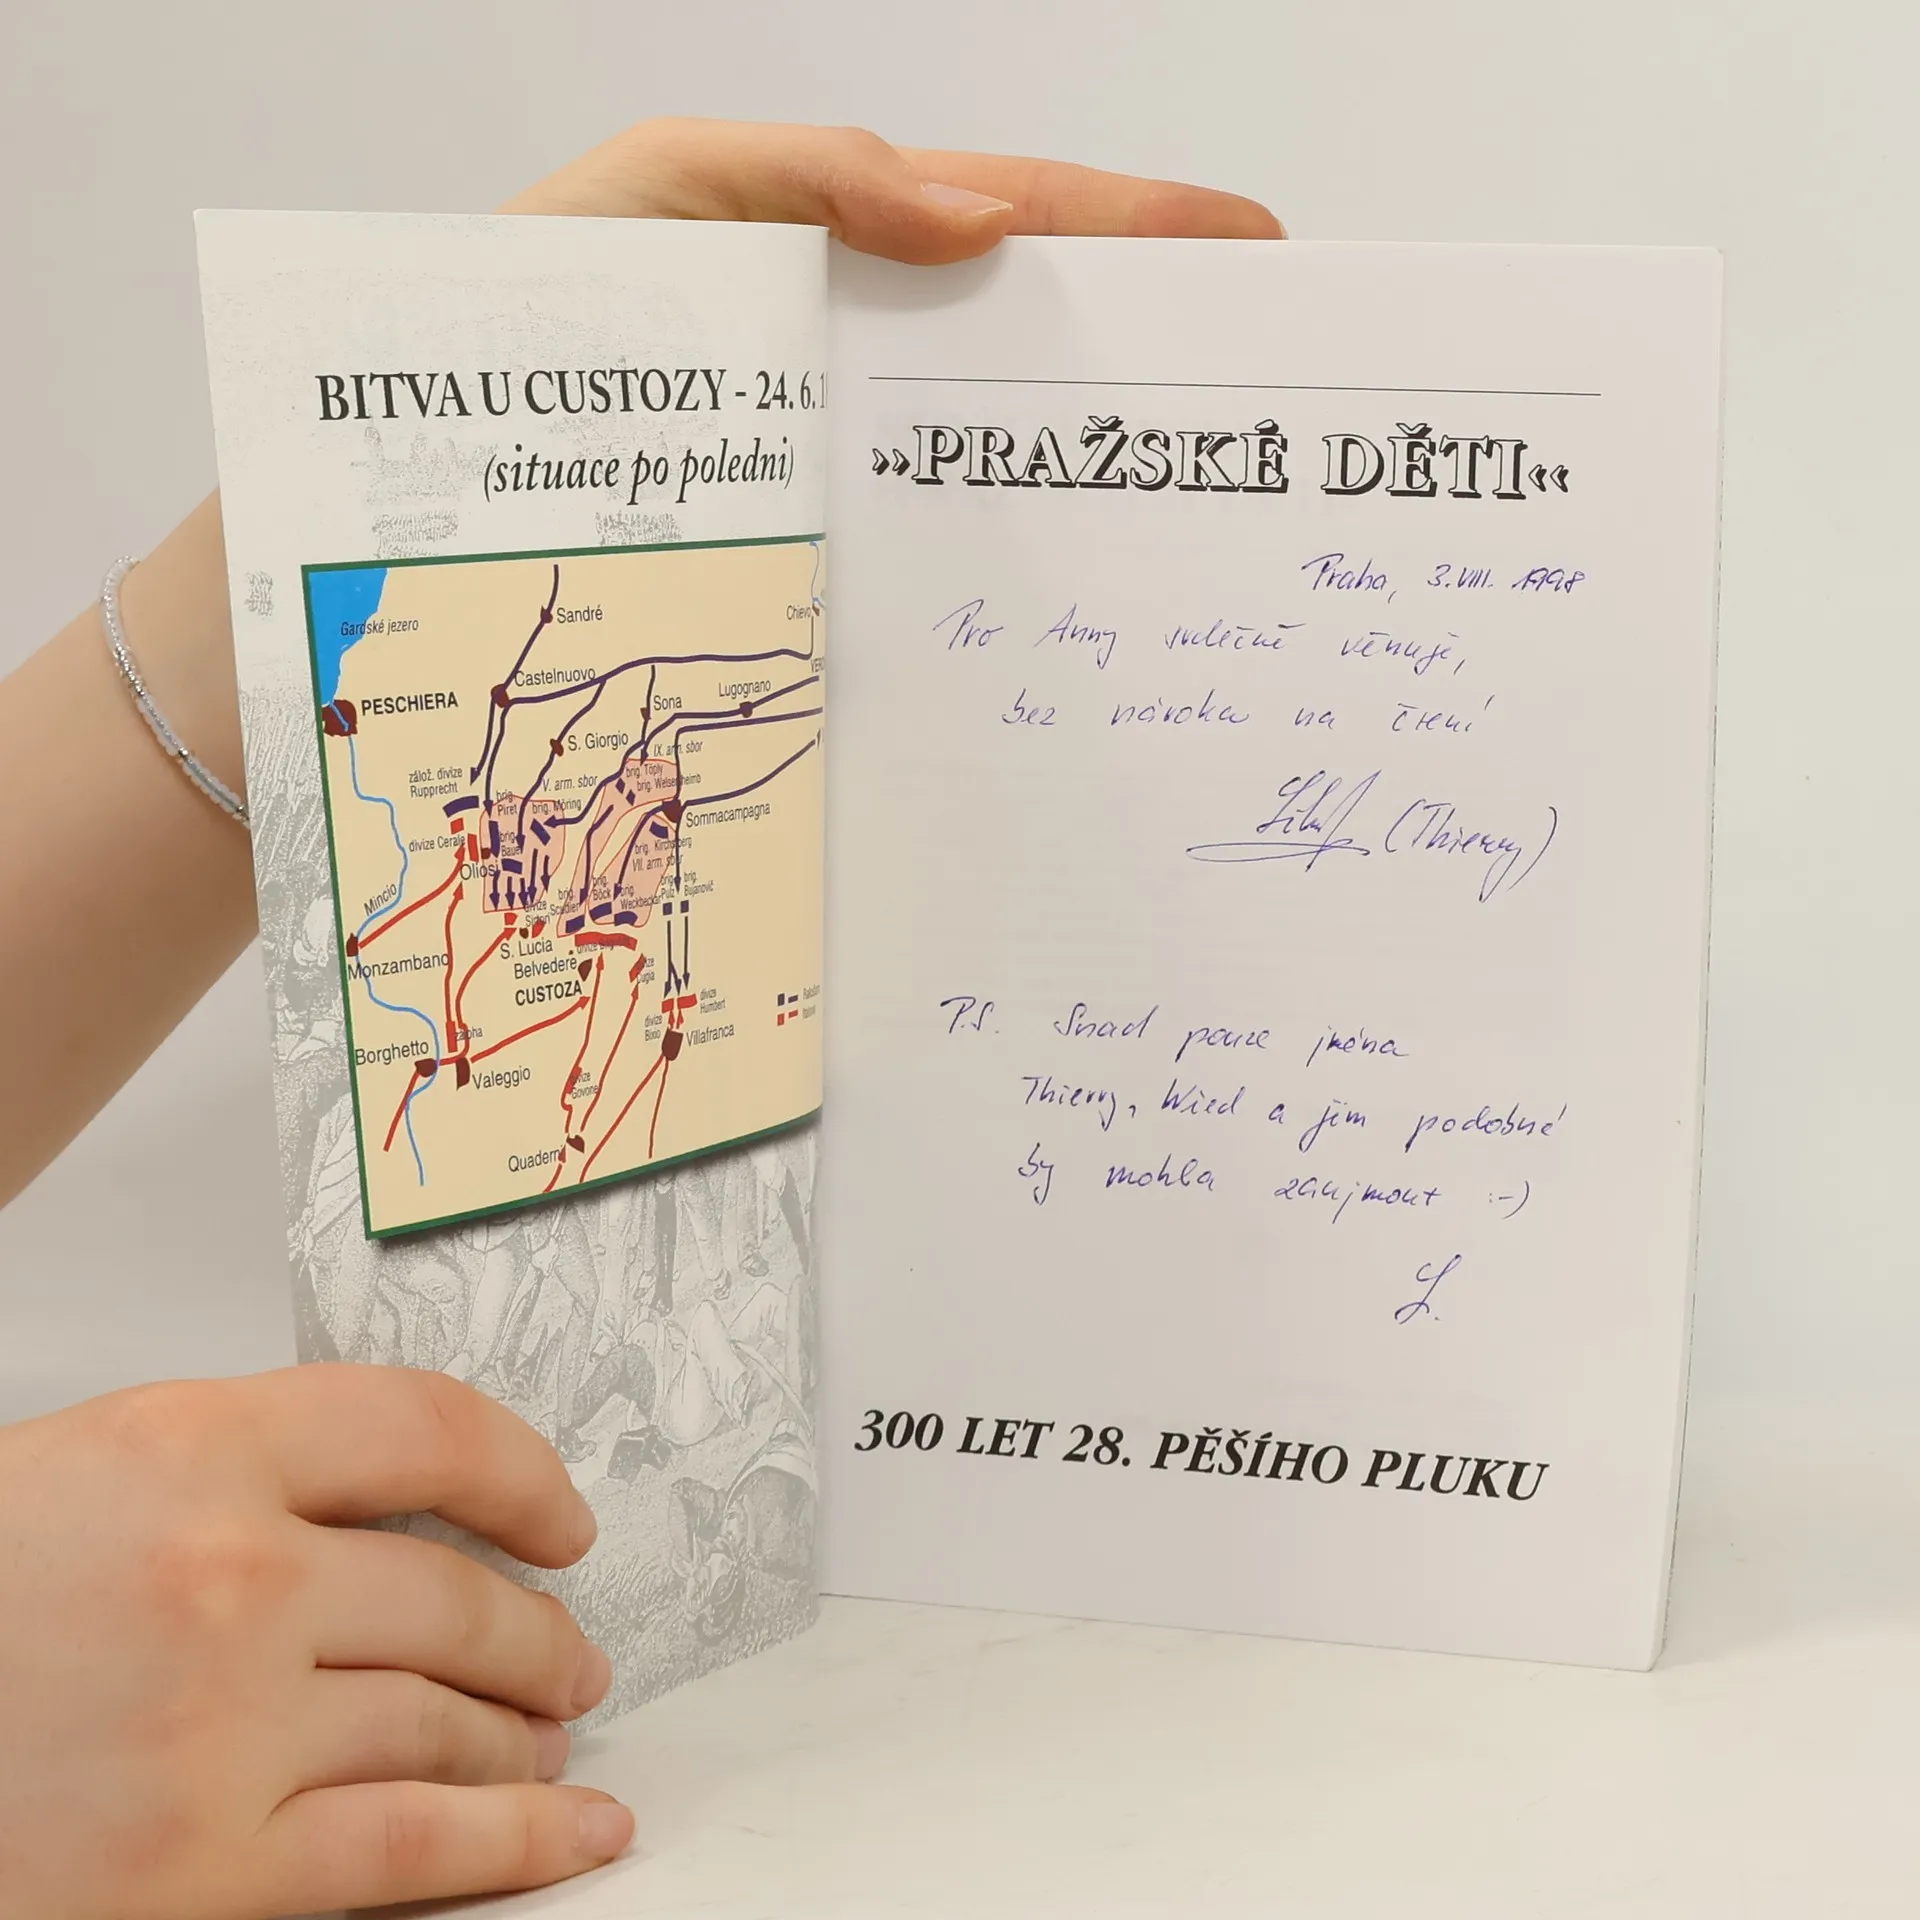 BITVA U CUSTOZY - 24. 6. 1
(situace po poledni)
Gardské jezero
Sandré
Chievo
Castelnuovo
PESCHIERA
Sona
Lugognano
VER
S. Giorgio
IX. arm. sbor
zálož. divize
Rupprecht
V. arm. sbor
brig. Töply
brig. Welsersheimb
brig.
Piret
brig. Möring
Sommacampagna
divize Cerale
brig.
Bauer
brig. Kirchsberg
VII. arm. sbor
Oliosi
Mincio
brig.
Scudier
brig.
Böck
brig.
Weckbecker
brig.
Pulz
brig.
Bujanovič
divize
Sirtori
S. Lucia
Monzambano
Belvedere
CUSTOZA
divize
Cugia
divize
Humbert
divize
Bixio
Villafranca
záloha
Borghetto
Valeggio
divize
Govone
Quaderni
»PRAŽSKÉ DĚTI«
Praha, 3. VIII. 1998
Pro Anny srdečně věnuje,
bez nároku na čtení
(Thierry)
P.S. Snad pouze jména
Thierry, Wied a jim podobné
by mohla zaujmout :-)
300 LET 28. PĚŠÍHO PLUKU